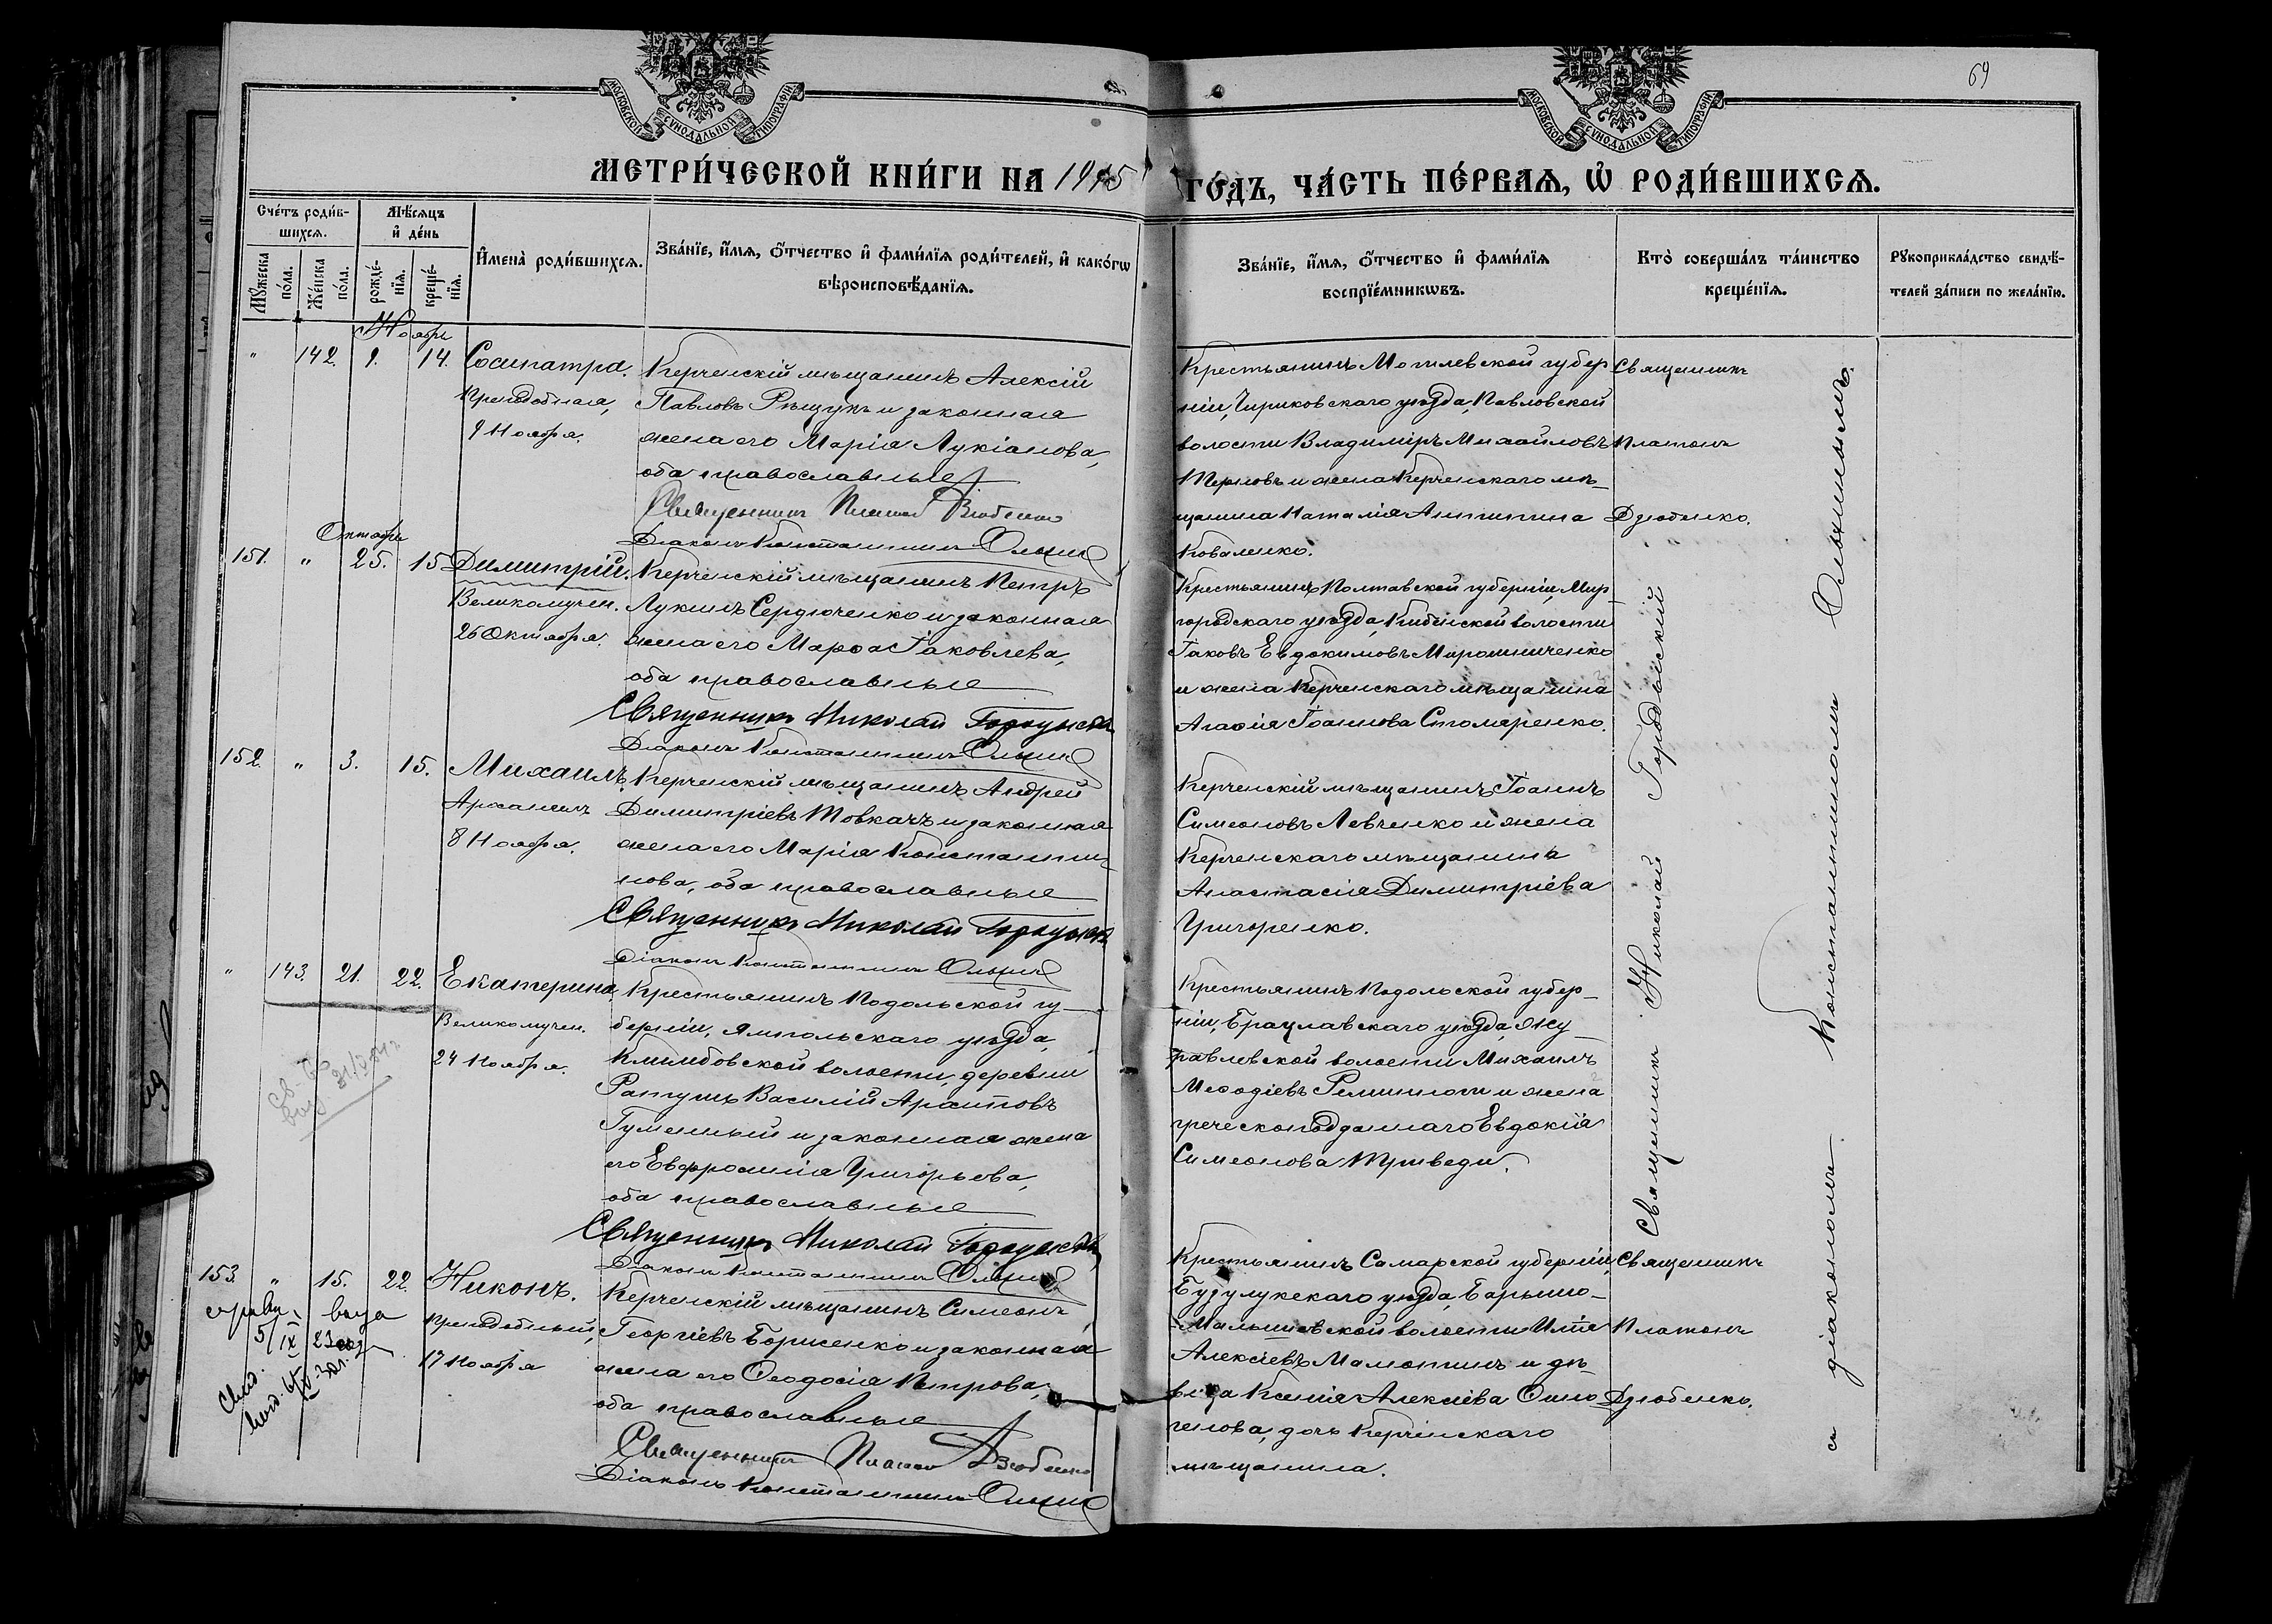 69
МОСКОВСКОЙ СѴНОДАЛЬНОЙ ТИПОГРАФІИ
МОСКОВСКОЙ СѴНОДАЛЬНОЙ ТИПОГРАФІИ
МЕТРИ́ЧЕСКОЙ КНИ́ГИ НА 1915 ГО́ДЪ, ЧА́СТЬ ПЕ́РВАЯ, Ѡ҆ РОДИ́ВШИХСЯ.
Сче́тъ роди́в-
шихся.
Мꙋ́жеска по́ла.
Же́нска по́ла.
Мѣ́сяцъ
и҆ де́нь
рожде́-
нїя.
креще́-
нїя.
И҆мена̀ роди́вшихся.
Зва́нїе, и҆́мя, ѻ҆́тчество и҆ фами́лїя роди́телей, и҆ како́гѡ
вѣроисповѣ́данїя.
Зва́нїе, и҆́мя, ѻ҆́тчество и҆ фами́лїя
воспрїе́мникѡвъ.
Кто̀ соверша́лъ та́инство
креще́нїя.
Рꙋкоприкла́дство свидѣ́-
телей за́писи по жела́нїю.
Ноябрь
" 142. 9. 14. Сосипатра.
Преподобная,
9 Ноября.
Керченскій мѣщанинъ Алексій
Павловъ Рѣщукъ и законная
жена его Марія Лукіанова,
оба православные
Священникъ Платонъ Дзюбенко
Діаконъ Константинъ
Крестьянинъ Могилевской губер
ніи, Чириковскаго уѣзда, Павловской
волости Владиміръ Михайловъ
и жена Керченскаго мѣ-
щанина Наталія Антипина
Коваленко.
Священникъ
Платонъ
Дзюбенко.
Октябрь
151. " 25. 15 Димитрій.
Великомучен.
26 Октября.
Керченскій мѣщанинъ Петръ
Лукинъ Сердюченко и законная
жена его Марѳа Іаковлева,
оба православные
Священникъ Николай
Діаконъ Константинъ
Крестьянинъ Полтавской губерніи, Мир
городскаго уѣзда, Кибинской волости
Іаковъ Евдокимовъ Мирошниченко
и жена Керченскаго мѣщанина
Агаѳія Іоаннова Столяренко.
152. " 3. 15. Михаилъ.
Архангелъ
8 Ноября.
Керченскій мѣщанинъ Андрей
Димитріевъ Товкачъ и законная
жена его Марія Константи
нова, оба православные
Священникъ Николай
Діаконъ Константинъ
Керченскій мѣщанинъ Іоаннъ
Симеоновъ Левченко и жена
Керченскаго мѣщанина
Анастасія Димитріева
Григоренко.
" 143. 21. 22. Екатерина
Великомучен.
24 Ноября.
Крестьянинъ Подольской гу-
берніи, Ямпольскаго уѣзда,
Клембовской волости, деревни
Ратушъ Василій Архиповъ
Гуменный и законная жена
его Евфросинія Григорьева,
оба православные
Священникъ Николай
Діаконъ Константинъ
Крестьянинъ Подольской губер-
ніи, Брацлавскаго уѣзда, Жу-
равлевской волости Михаилъ
Меѳодіевъ и жена
греческоподданнаго Евдокія
Симеонова
Священникъ Николай
съ діакономъ Константиномъ
153. " 15. 22. Никонъ.
Преподобный,
17 Ноября
Керченскій мѣщанинъ Симеонъ
Георгіевъ Борисенко и законная
жена его Ѳеодосія Петрова,
оба православные
Священникъ Платонъ Дзюбенко
Діаконъ Константинъ
Крестьянинъ Самарской губерніи,
Бузулукскаго уѣзда,
волости Илія
Алексіевъ Мамонтинъ и дѣ-
вица Ксенія Алексіева
дочь Керченскаго
мѣщанина.
Священникъ
Платонъ
Дзюбенко.